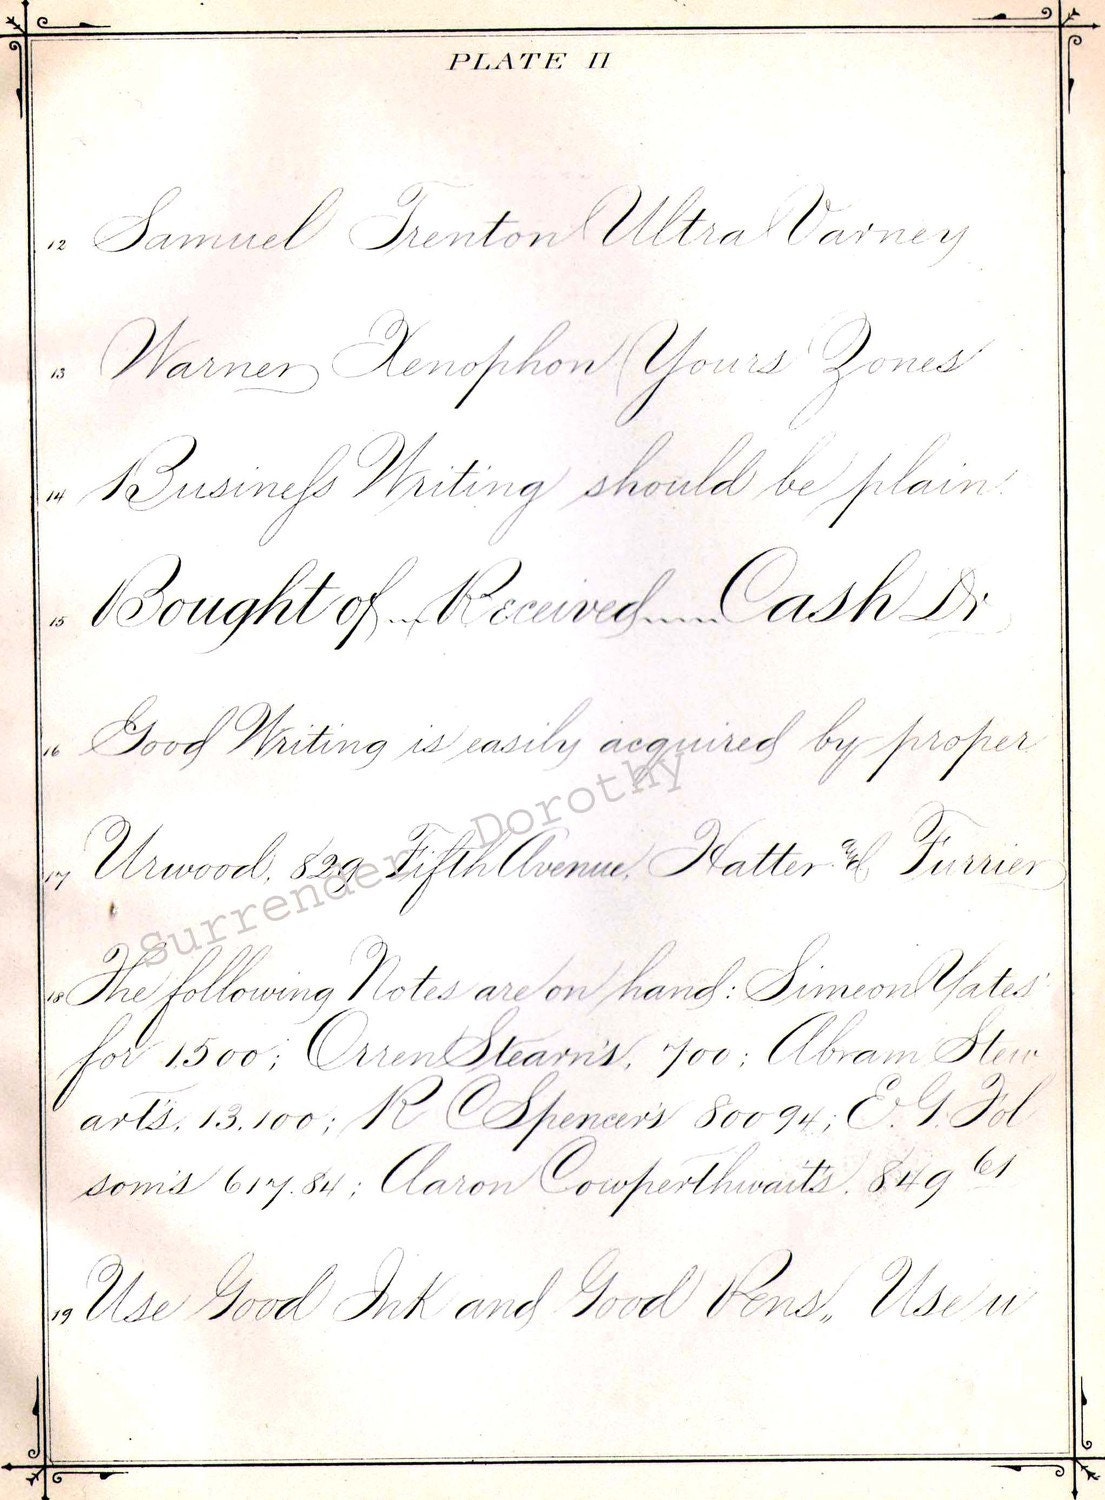 PLATE II
12 Samuel Trenton Ultra Varney
13 Warner Xenophon Yours Zones
14 Busineſs Writing should be plain.
15 Bought of.... Received...... Cash Dr
16 Good Writing is easily acquired by proper
17 Urwood, 829 Fifth Avenue, Hatter and Furrier
18 The following Notes are on hand: Simeon Yates'
for 1.500; Orren Stearn's, 700; Abram Stew
art's, 13,100; R C Spencer's 800 94; E. G. Fol
som's 617.84; Aaron Cowperthwait's, 849 61
19 Use Good Ink and Good Pens,, Use u
Surrender Dorothy